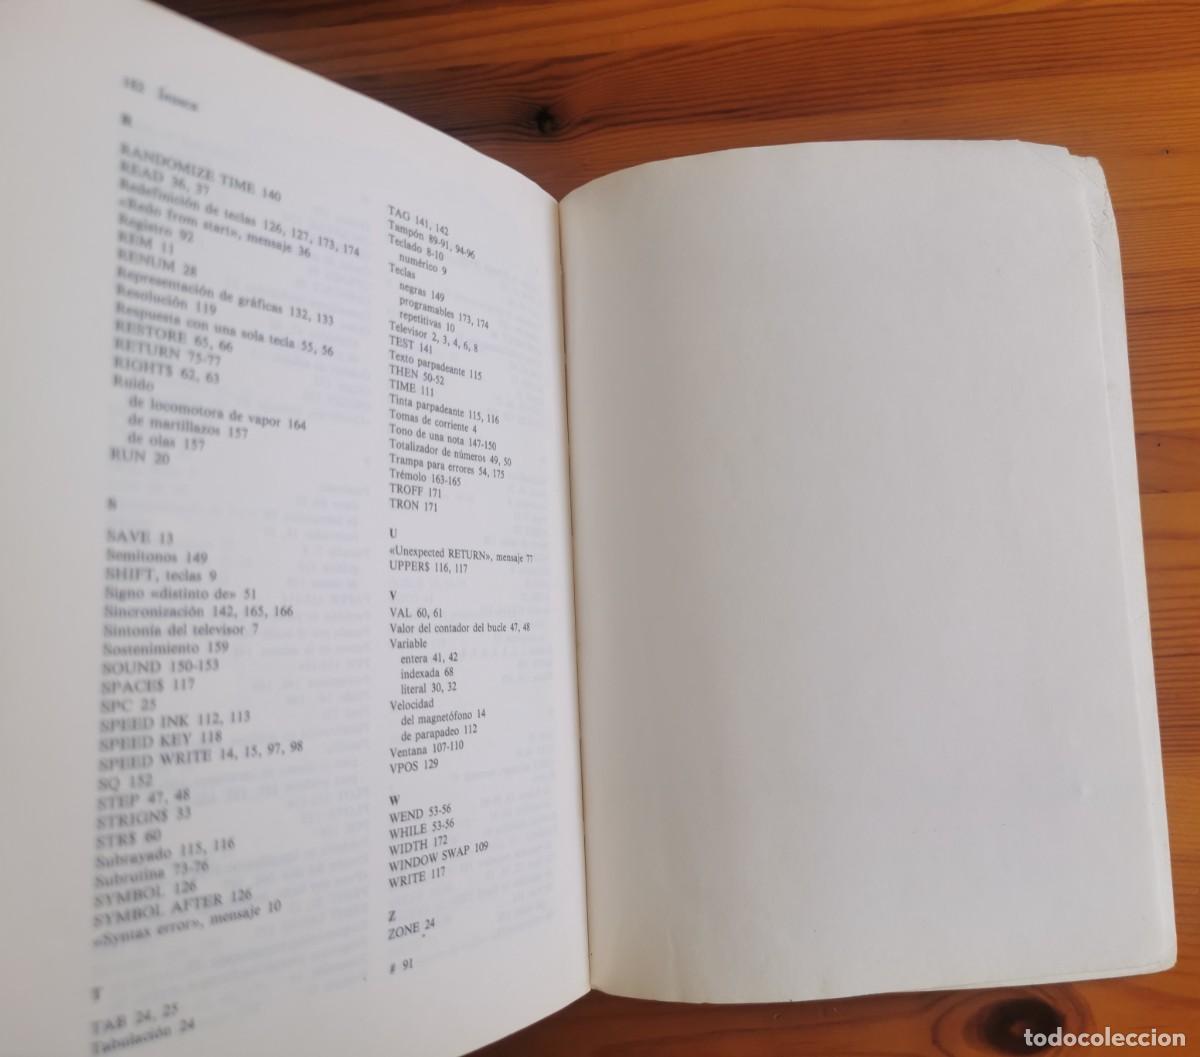 182 Índice
R
RANDOMIZE TIME 140
READ 36, 37
Redefinición de teclas 126, 127, 173, 174
«Redo from start», mensaje 36
Registro 92
REM 11
RENUM 28
Representación de gráficas 132, 133
Resolución 119
Respuesta con una sola tecla 55, 56
RESTORE 65, 66
RETURN 75-77
RIGHT$ 62, 63
Ruido
de locomotora de vapor 164
de martillazos 157
de olas 157
RUN 20
S
SAVE 13
Semitonos 149
SHIFT, teclas 9
Signo «distinto de» 51
Sincronización 142, 165, 166
Sintonía del televisor 7
Sostenimiento 159
SOUND 150-153
SPACE$ 117
SPC 25
SPEED INK 112, 113
SPEED KEY 118
SPEED WRITE 14, 15, 97, 98
SQ 152
STEP 47, 48
STRIGN$ 33
STR$ 60
Subrayado 115, 116
Subrutina 73-76
SYMBOL 126
SYMBOL AFTER 126
«Syntax error», mensaje 10
T
TAB 24, 25
Tabulación 24
TAG 141, 142
Tampón 89-91, 94-96
Teclado 8-10
numérico 9
Teclas
negras 149
programables 173, 174
repetitivas 10
Televisor 2, 3, 4, 6, 8
TEST 141
Texto parpadeante 115
THEN 50-52
TIME 111
Tinta parpadeante 115, 116
Tomas de corriente 4
Tono de una nota 147-150
Totalizador de números 49, 50
Trampa para errores 54, 175
Trémolo 163-165
TROFF 171
TRON 171
U
«Unexpected RETURN», mensaje 77
UPPER$ 116, 117
V
VAL 60, 61
Valor del contador del bucle 47, 48
Variable
entera 41, 42
indexada 68
literal 30, 32
Velocidad
del magnetófono 14
de parapadeo 112
Ventana 107-110
VPOS 129
W
WEND 53-56
WHILE 53-56
WIDTH 172
WINDOW SWAP 109
WRITE 117
Z
ZONE 24
# 91
todocoleccion